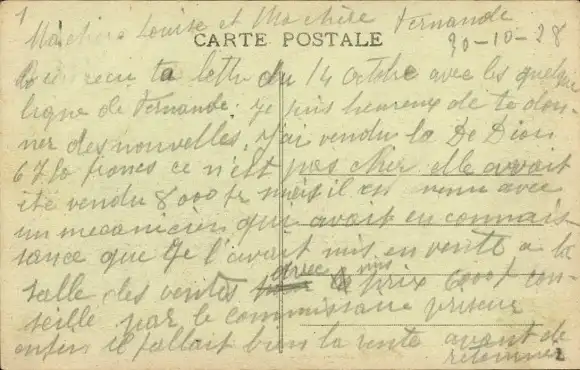 1
Ma chère Louise et Ma chère Fernande
CARTE POSTALE
30-10-28
recu ta lettre du 14 octobre avec les quelque
ligne de Fernande. Je suis heureux de te don-
ner des nouvelles. J'ai vendu la De Dion
francs ce n'est pas cher elle avait
été vendu 8000 fr mais il est venu avec
un mecanicien qui avait eu connais
sance que je l'avait mis en vente a la
salle des ventes avec mis a prix 6000 f con-
seille par le commissaire priseur
enfin il fallait bien la vente avant de
retourner